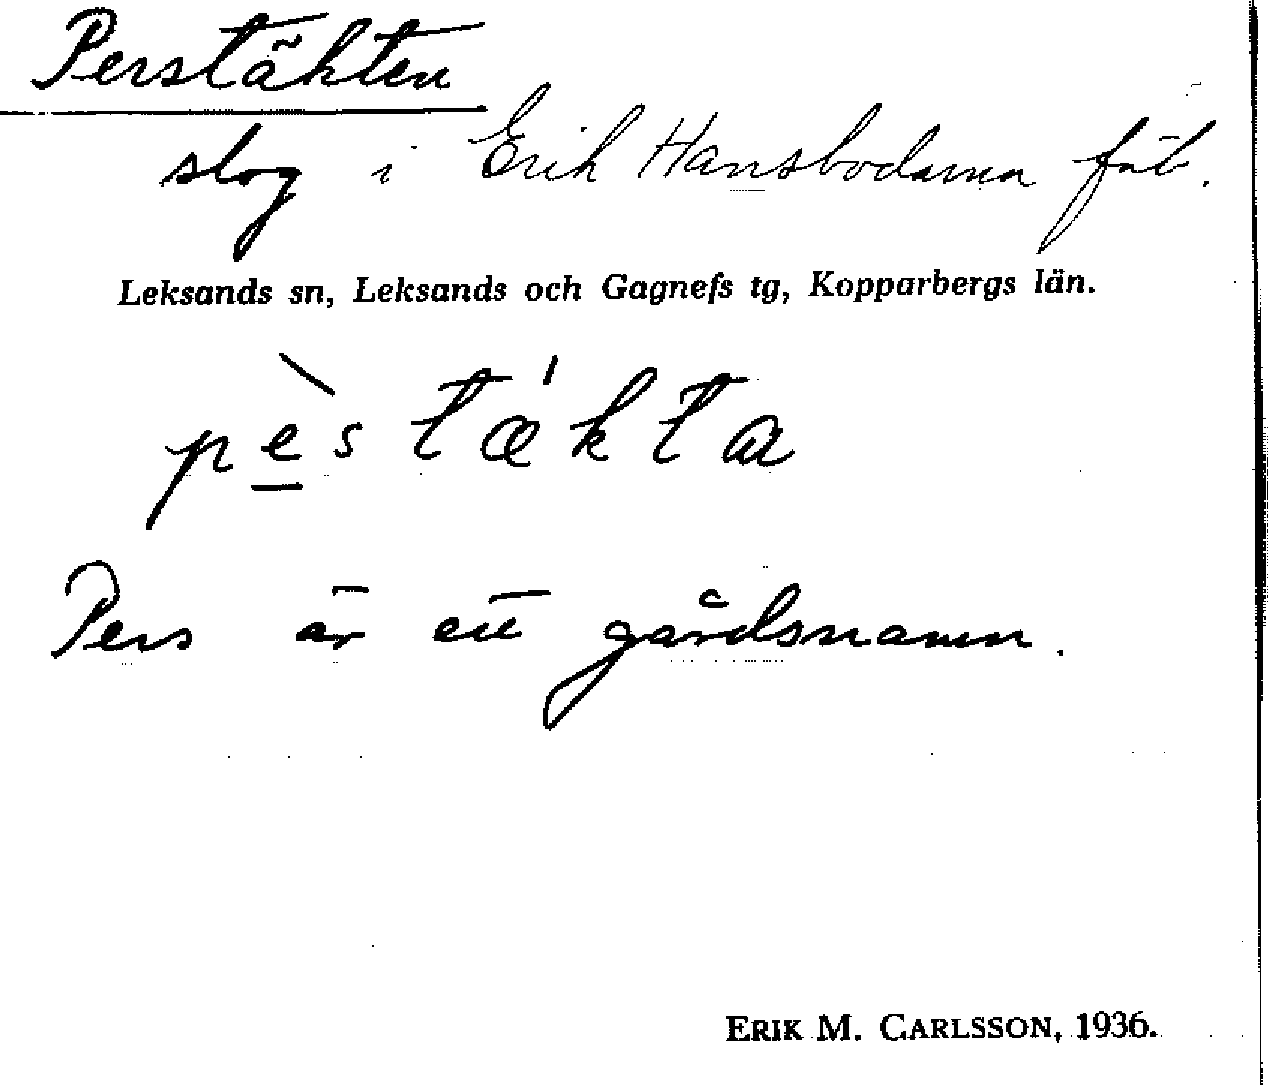 Perstäkten
slog i Erik Hansbodarna fäb.
Leksands sn, Leksands och Gagnefs tg, Kopparbergs län.
pès tækta
Pers är ett gårdsnamn.
ERIK M. CARLSSON, 1936.